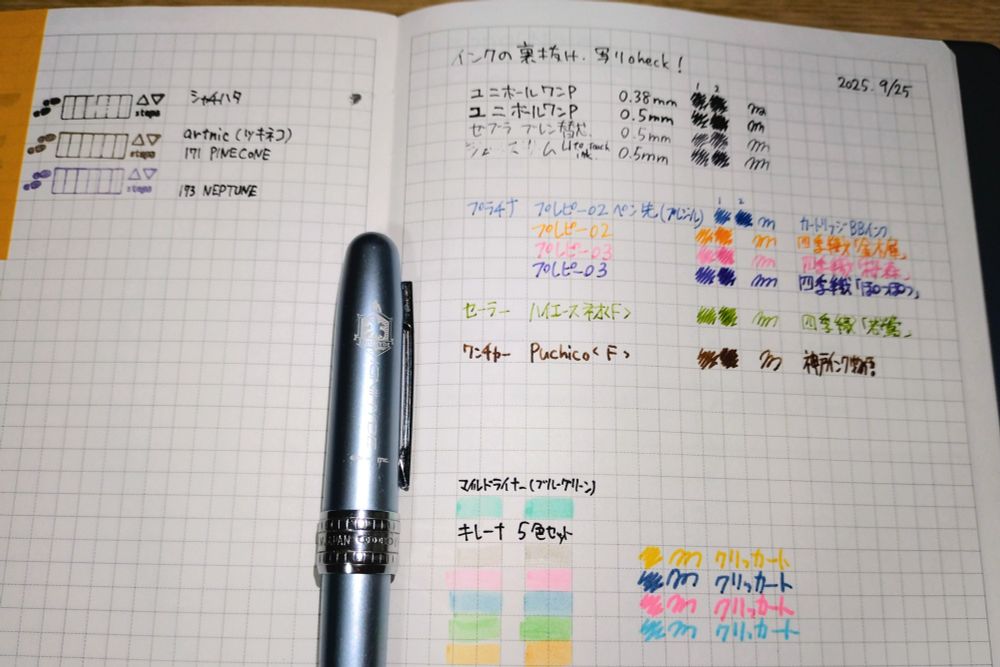 シャチハタ
steps
artnic (ツキネコ)
171 PINECONE
steps
193 NEPTUNE
steps
インクの裏抜け、写りcheck!
2025. 9/25
1 2
ユニボールワンP 0.38mm
ユニボールワンP 0.5mm
ゼブラ ブレン替芯 0.5mm
0.5mm
1 2
プラチナ プレピー02ペン先 カートリッジBBインク
プレピー02 四季織「金木犀」
プレピー03 四季織
プレピー03 四季織
セーラー ハイエースネオ<F> 四季織
ワンチャー Puchico<F> 神戸インク物語
マイルドライナー(ブルーグリーン)
キレーナ 5色セット
クリッカート
クリッカート
クリッカート
クリッカート
JAPAN